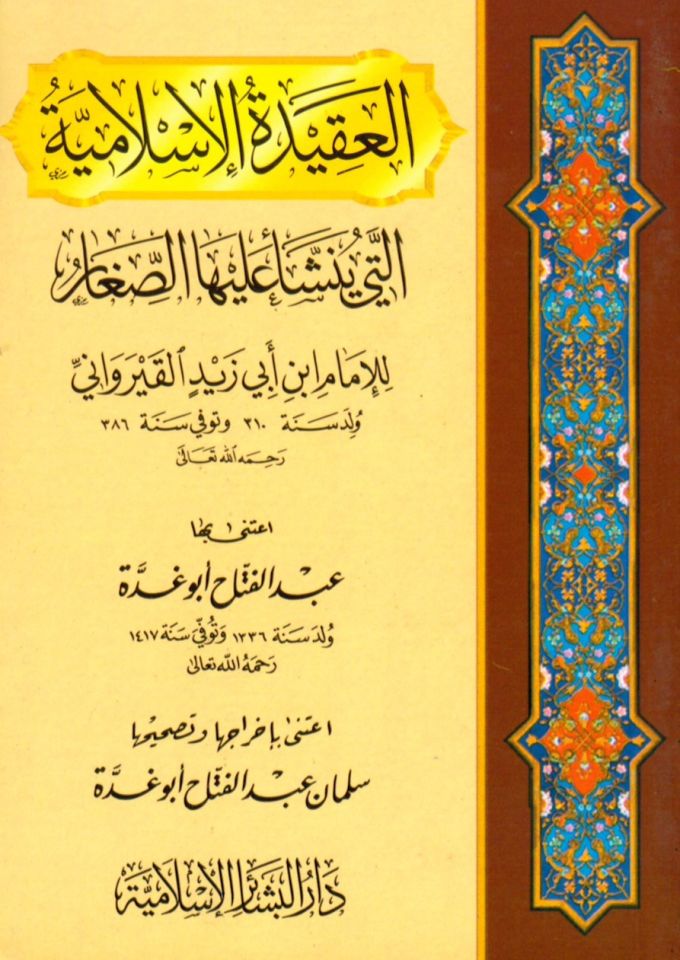 العَقِيْدَةُ الإِسْلَامِيَّةُ
الَّتِي يُنَشَّأُ عَلَيْهَا الصِّغَارُ
لِلإِمَامِ ابْنِ أَبِي زَيْدٍ القَيْرَوَانِيِّ
وُلِدَ سَنَة ٣١٠ وَتوفي سَنَة ٣٨٦
رَحِمَه اللّٰه تَعَالَىٰ
اعتنى بها
عبد الفتّاح أبو غدَّة
وُلدَ سَنَة ١٣٣٦ وَتُوُفِّي سَنَة ١٤١٧
رَحمَهُ اللّٰه تعالىٰ
اعتنىٰ بإخراجها وتصحيحها
سلمان عبد الفتّاح أبو غدَّة
دَارُ البَشَائِرِ الإِسْلَامِيَّة